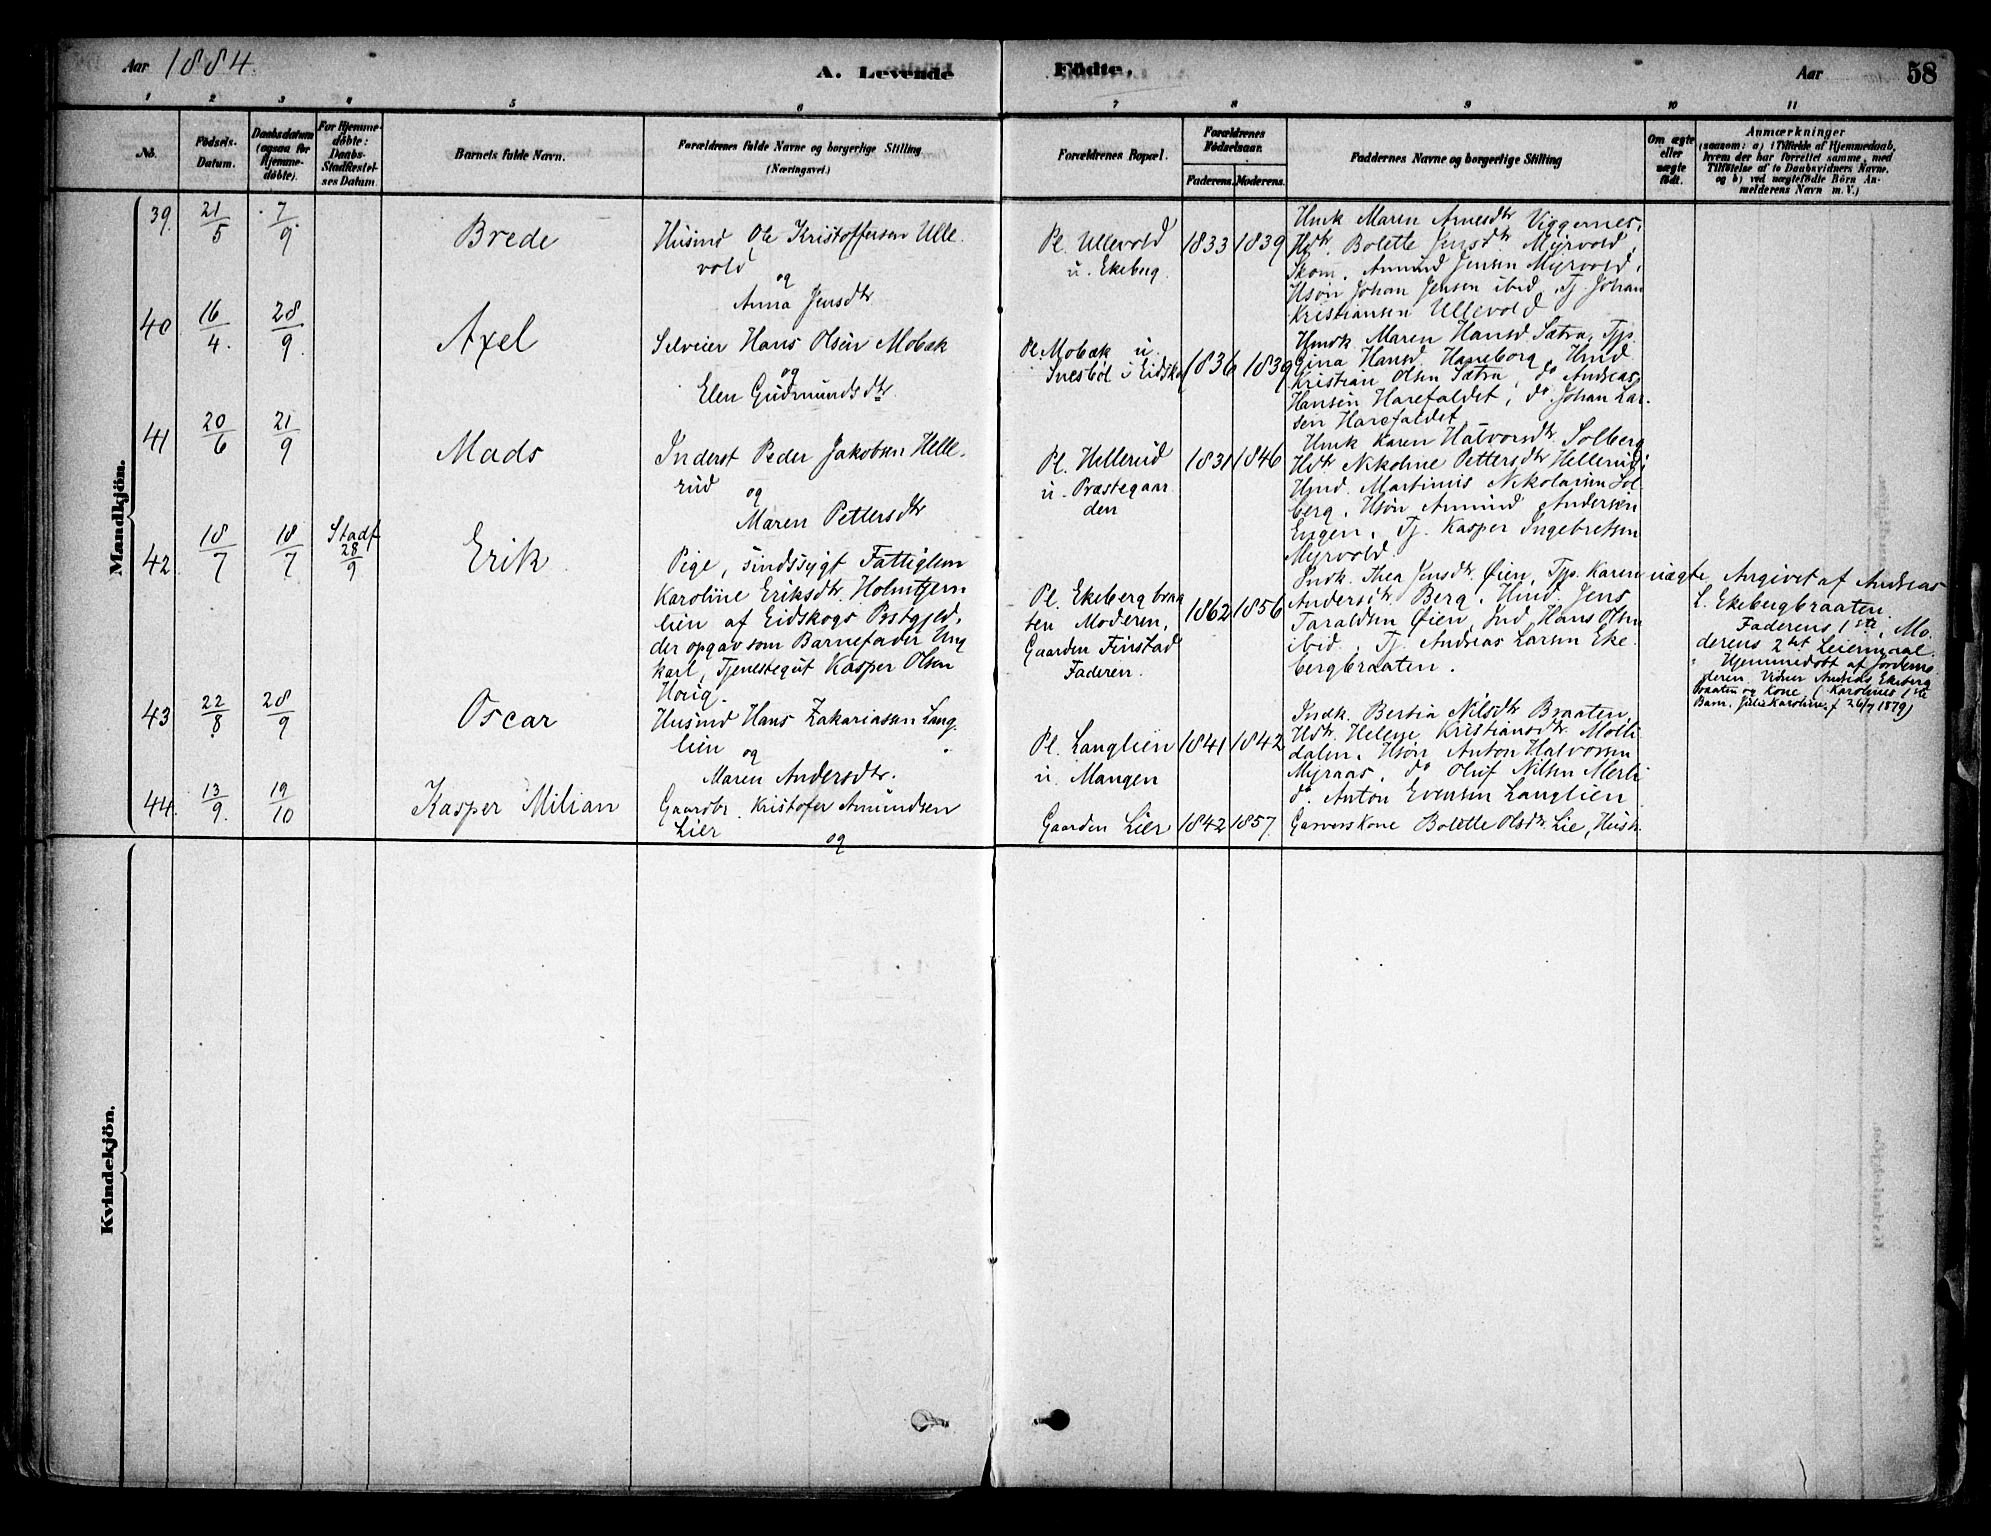 Aar 1884.
A. Levende Födte.
Aar
58
1 2 3 4 5 6 7 8 9 10 11
No.
Födsels-Datum.
Daabsdatum (ogsaa for Hjemme-döbte).
For Hjemme-döbte: Daabs-Stadfæstel-ses Datum.
Barnets fulde Navn.
Forældrenes fulde Navne og borgerlige Stilling (Næringsvei.)
Forældrenes Bopæl.
Forældrenes Födselsaar.
Faderens. Moderens.
Faddernes Navne og borgerlige Stilling
Om ægte eller uægte födt.
Anmærkninger
(saasom: a) i Tilfælde af Hjemmedaab,
hvem der har forrettet samme, med
Tilföielse af to Daabsvidners Navne.
og b) ved uægtefödte Börn An-
melderens Navn m. V.)
Mandkjön.
39. 21/5 7/9.
Brede
Husmd Ole Kristoffersen Ulle-
vold
og
Anna Jensdtr
Pl. Ullevold
u. Ekeberg.
1833 1839
Hmk Maren Arnesdtr Viggernes,
Hdtr. Bolette Jensdtr. Myrvold,
Skom. Amund Jensen Myrvold,
Hsön Johan Jensen ibid, Tj. Johan
Kristiansen Ullevold
40 16/4. 28/9.
Axel
Selveier Hans Olsen Mobæk
og
Elen Gudmundsdtr.
Pl Mobæk u.
Snesböl i Eidsko
1836 1839
Hmdk. Maren Hansd. Sætra, Typ.
Gina Hansd Haneborg, Hmd
Kristian Olsen Sætra, do Andreas
Hansen Harefaldet, do Johan Lar-
sen Harefaldet
41 20/6 21/9
Mads
Inderst Peder Jakobsen Helle-
rud
og
Maren Pettersdtr
Pl. Hellerud
u. Præstegaar
den
1831 1846
Hmk Karen Halvorsdtr Solberg
Hdtr Nikoline Pettersdtr Hellerud,
Hmd. Martinus Nikolaisen Sol-
berg, Hsön Amund Andersen
Engen, Tj. Kasper Ingebretsen
Myrvold.
42. 18/7 18/7 Stadf 28/9
Erik
Pige, sindssygt Fattiglem
Karoline Eriksdtr. Holmtjern
lien af Eidskogs Pstgjeld,
der opgav som Barnefader Ung
karl, Tjenestegut Kasper Olsen
Horig.
Pl. Ekebergbraa
ten Moderen,
Gaarden Finstad
Faderen.
1862 1856
Indk. Thea Jensdtr. Öien, Typ. Karen
Andersdtr. Berg, Hmd. Jens
Taraldsen Öien, Ind Hans Olsen
ibid, Tj. Andreas Larsen Eke
bergbraaten.
uægte
Angivet af Andreas
L. Ekebergbraaten.
Faderens 1ste, Mo-
derens 2det Leiermaal.
Hjemmedöbt af Jordemo
deren. Vidner Andreas Ekeberg
braaten og Kone, (Karolines 1ste
Barn. Julie Karoline, f 26/7 1879)
43 22/8 28/9
Oscar
Husmd Hans Zakariasen Lang-
lien og
Maren Andersdtr.
Pl. Langlien
u. Mangen
1841 1842
Indk. Bertia Nilsdtr Braaten,
Hdtr. Helene Kristiansdtr. Molli
dalen, Hsön Anton Halvorsen
Myraas, do Oluf Nilsen Merli
do. Anton Evensen Langlien
44. 13/9. 19/10
Kasper Milian
Gaardbr. Kristofer Amundsen
Lier
og
Gaarden Lier
1842 1857
Garverskone Bolette Olsdtr. Lie, Hustr.
Kvindekjön.